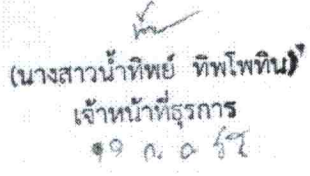 (นางสาวน้ำทิพย์ ทิพโพทิน)
เจ้าหน้าที่ธุรการ